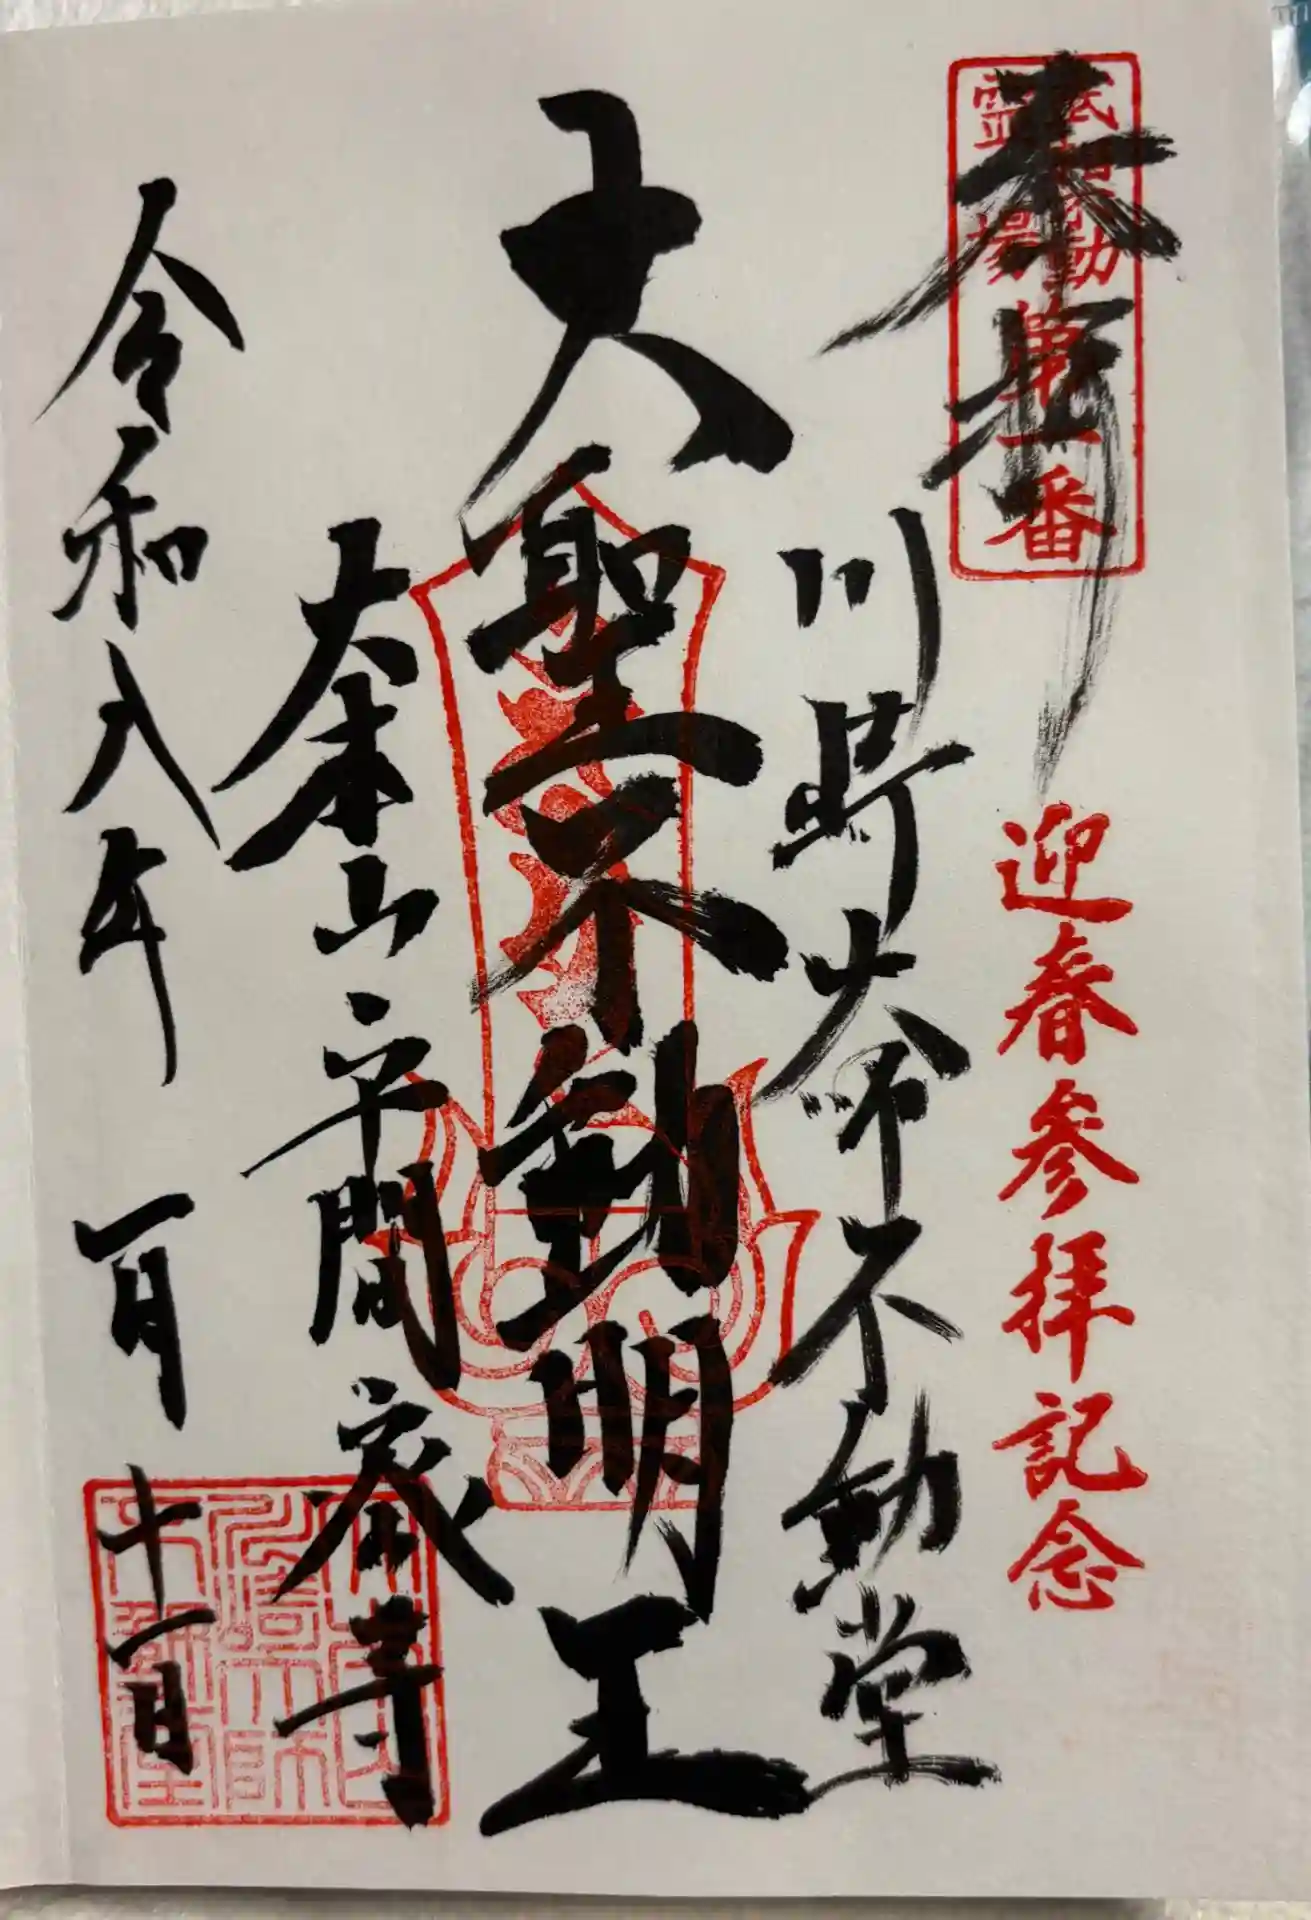 奉拝
霊場第一番
迎春参拝記念
川崎大師不動堂
大聖不動明王
大本山平間寺
令和八年一月十一日